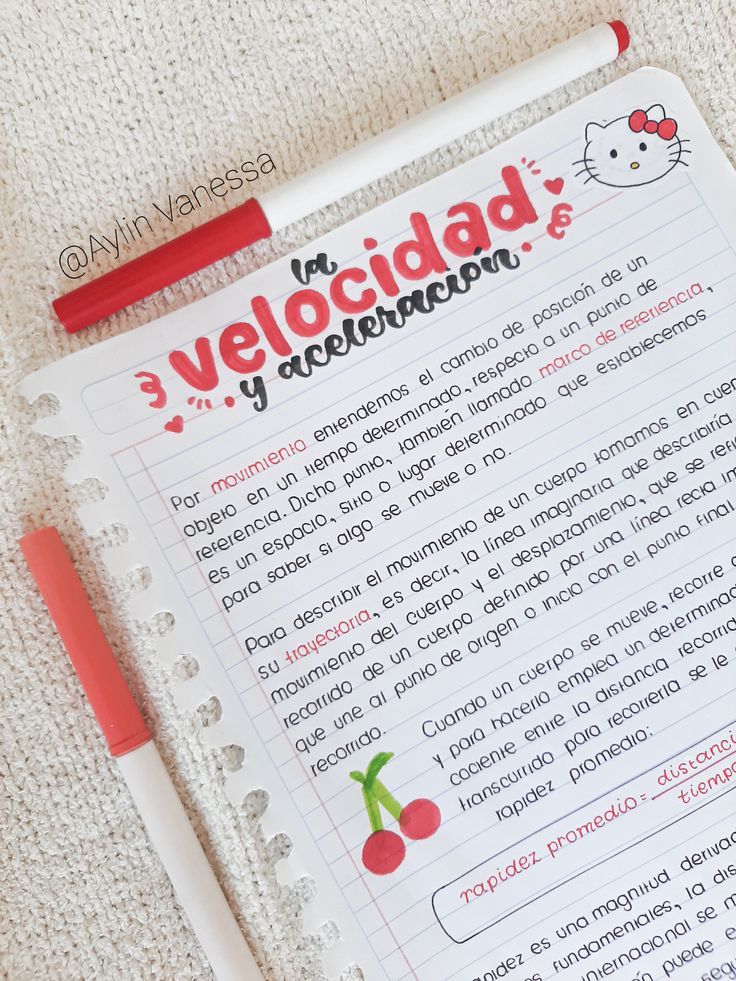 @Aylin Vanessa
la
velocidad
y aceleración
Por movimiento entendemos el cambio de posición de un
objeto en un tiempo determinado, respecto a un punto de
referencia. Dicho punto, también llamado marco de referencia,
es un espacio, sitio o lugar determinado que establecemos
para saber si algo se mueve o no.
Para describir el movimiento de un cuerpo tomamos en
su trayectoria, es decir, la línea imaginaria que describiría
movimiento del cuerpo y el desplazamiento, que se
recorrido de un cuerpo definido por una línea recta
que une al punto de origen o inicio con el punto final
recorrido.
Cuando un cuerpo se mueve, recorre
y para hacerlo emplea un
cociente entre la distancia
transcurrido para recorrerla se le
rapidez promedio:
rapidez promedio=
es una magnitud
fundamentales, la
se
puede